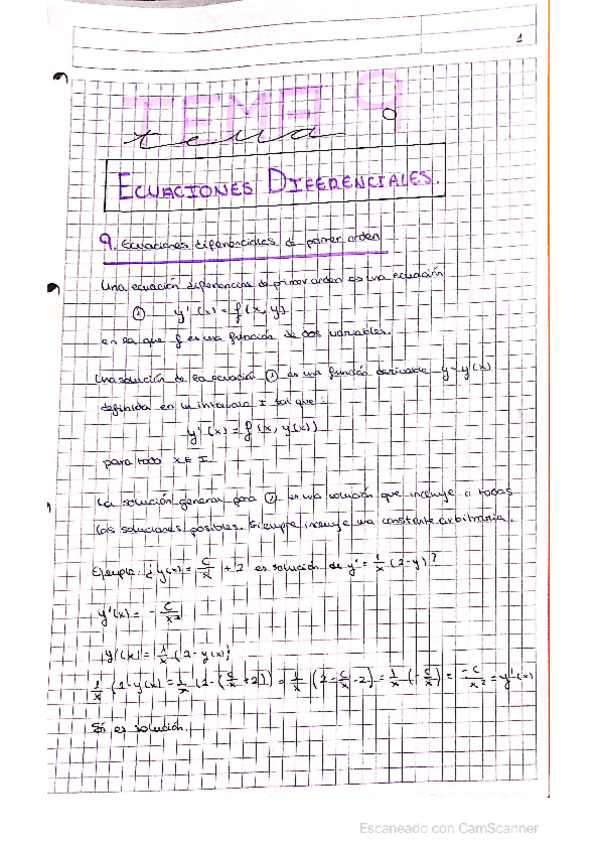 1
TEMA 9
tema
ECUACIONES DIFERENCIALES.
9. Ecuaciones diferenciales de primer orden
Una ecuación diferencial de primer orden es una ecuación
① y'(x) = f(x, y)
en la que f es una función de dos variables.
Una solución de la ecuación ① es una función derivable y=y(x)
definida en un intervalo I tal que:
y'(x) = f(x, y(x))
para todo x ∈ I
La solución general para ① es una solución que incluye a todas
las soluciones posibles. Siempre incluye una constante arbitraria.
Ejemplo: ¿y(x) = C/x + 2 es solución de y' = 1/x (2-y)?
y'(x) = - C/x²
y'(x) = 1/x (2 - y(x))
1/x (2 - y(x) = 1/x (2 - (C/x + 2)) = 1/x (2 - C/x - 2) = 1/x (- C/x) = -C/x² = y'(x)
Sí es solución.
Escaneado con CamScanner